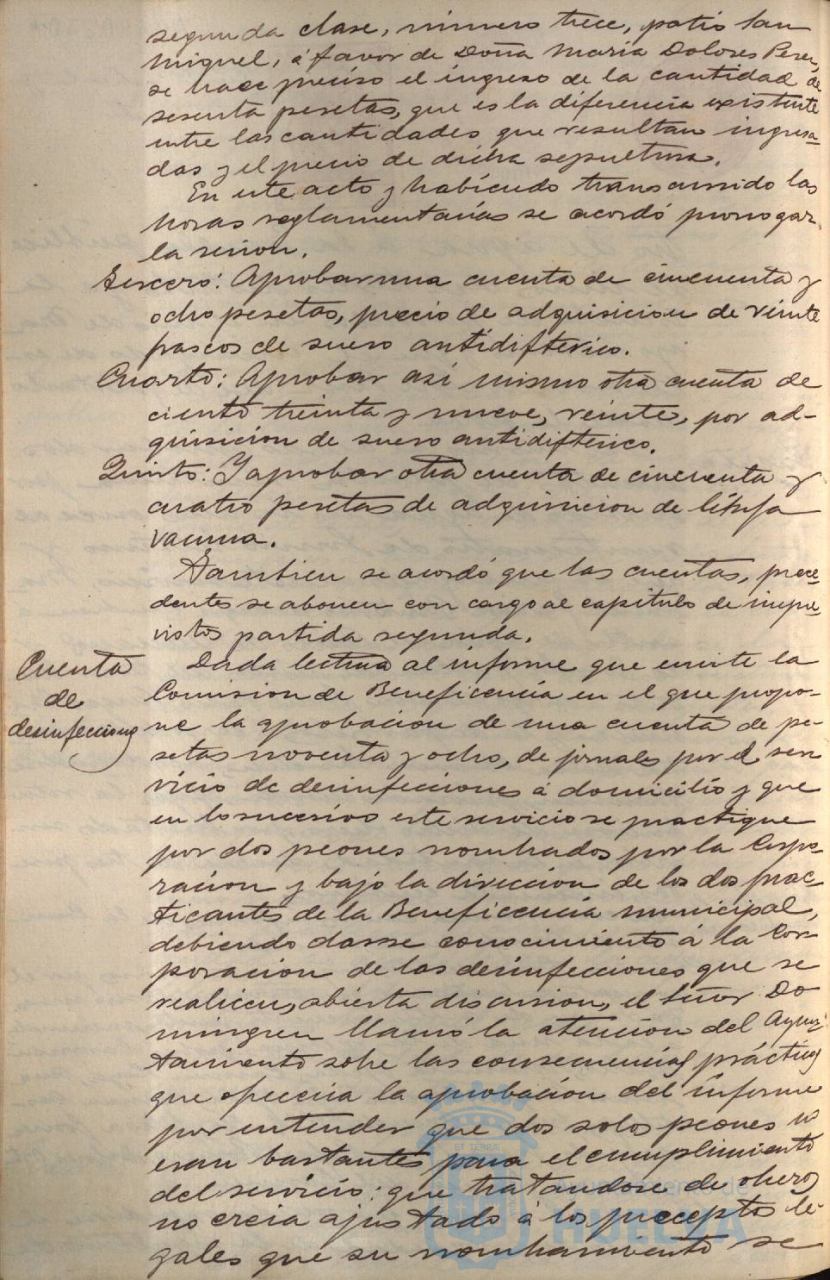 segunda clase, número trece, patio San
Miguel, á favor de Doña María Dolores Perez,
se hace preciso el ingreso de la cantidad de
sesenta pesetas, que es la diferencia existente
entre las cantidades que resultan ingresa-
das y el precio de dicha sepultura.
En este acto y habiendo transcurrido las
horas reglamentarias se acordó prorrogar
la sesion.
Tercero: Aprobar una cuenta de cincuenta y
ocho pesetas, precio de adquisicion de veinte
frascos de suero antidifterico.
Cuarto: Aprobar asi mismo otra cuenta de
ciento treinta y nueve, veinte, por ad-
quisicion de suero antidifterico.
Quinto: Y aprobar otra cuenta de cincuenta y
cuatro pesetas de adquisicion de linfa
vacuna.
Tambien se acordó que las cuentas, prece-
dentes se abonen con cargo al capitulo de impre-
vistos partida segunda.
Cuenta
de
desinfecciones
Dada lectura al informe que emite la
Comision de Beneficencia en el que propo-
ne la aprobacion de una cuenta de pe-
setas noventa y ocho, de jornales por el ser-
vicio de desinfecciones á domicilio y que
en lo sucesivo este servicio se practique
por dos peones nombrados por la Corpo-
racion y bajo la direccion de los dos prac-
ticantes de la Beneficencia municipal,
debiendo darse conocimiento á la Cor-
poracion de las desinfecciones que se
realicen, abierta discusion, el Señor Do
minguez llamó la atencion del Ayun-
tamiento sobre las consecuencias prácticas
que ofrecia la aprobacion del informe
por entender que dos solos peones no
eran bastantes para el cumplimiento
del servicio: que tratandose de obreros
no creia ajustado á los preceptos le-
gales que su nombramiento se
Ayuntamiento de
HUELVA